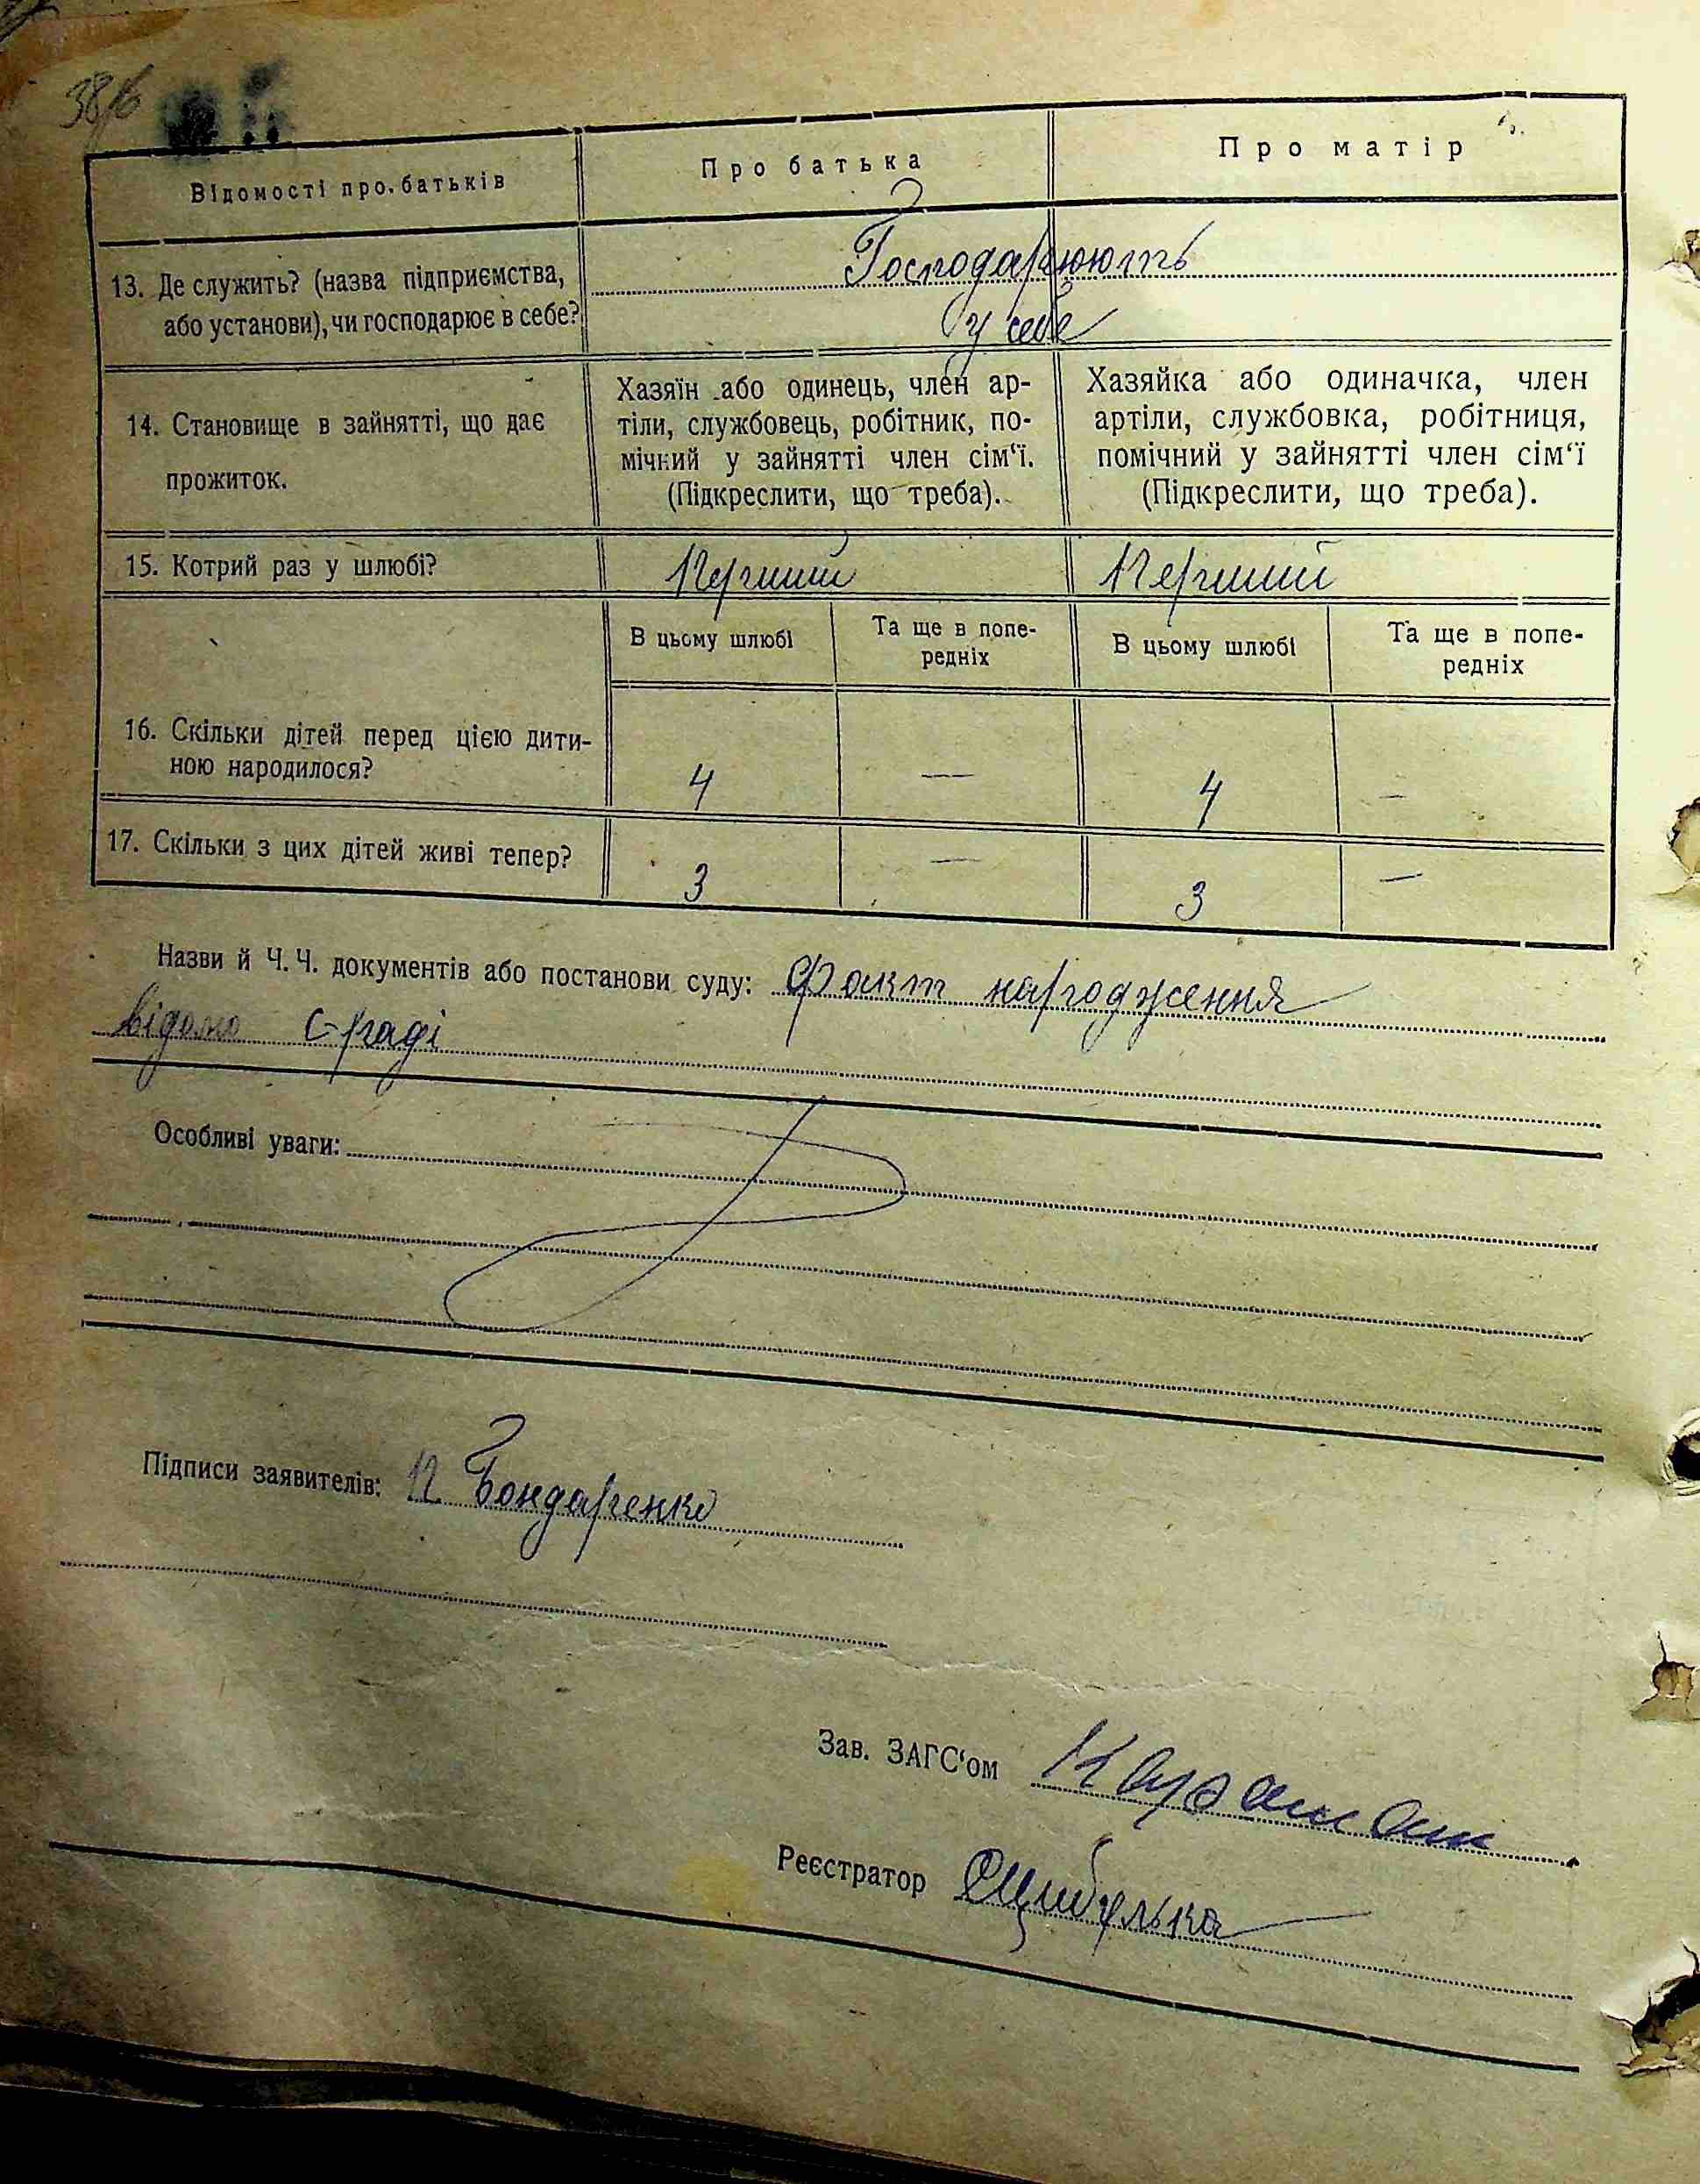 Відомості про батьків
Про батька
Про матір
13. Де служить? (назва підприємства,
або установи), чи господарює в себе?
Господарюють
у себе
14. Становище в зайнятті, що дає
прожиток.
Хазяїн або одинець, член ар-
тіли, службовець, робітник, по-
мічний у зайнятті член сім‘ї.
(Підкреслити, що треба).
Хазяйка або одиначка, член
артіли, службовка, робітниця,
помічний у зайнятті член сім‘ї
(Підкреслити, що треба).
15. Котрий раз у шлюбі?
Перший
Перший
В цьому шлюбі
Та ще в попе-
редніх
В цьому шлюбі
Та ще в попе-
редніх
16. Скільки дітей перед цією дити-
ною народилося?
4 — 4 —
17. Скільки з цих дітей живі тепер?
3 — 3 —
Назви й Ч. Ч. документів або постанови суду: Факт народження
відомо с-раді
Особливі уваги:
Підписи заявителів: П Бондаренко
Зав. ЗАГС‘ом
Реєстратор Цибулька